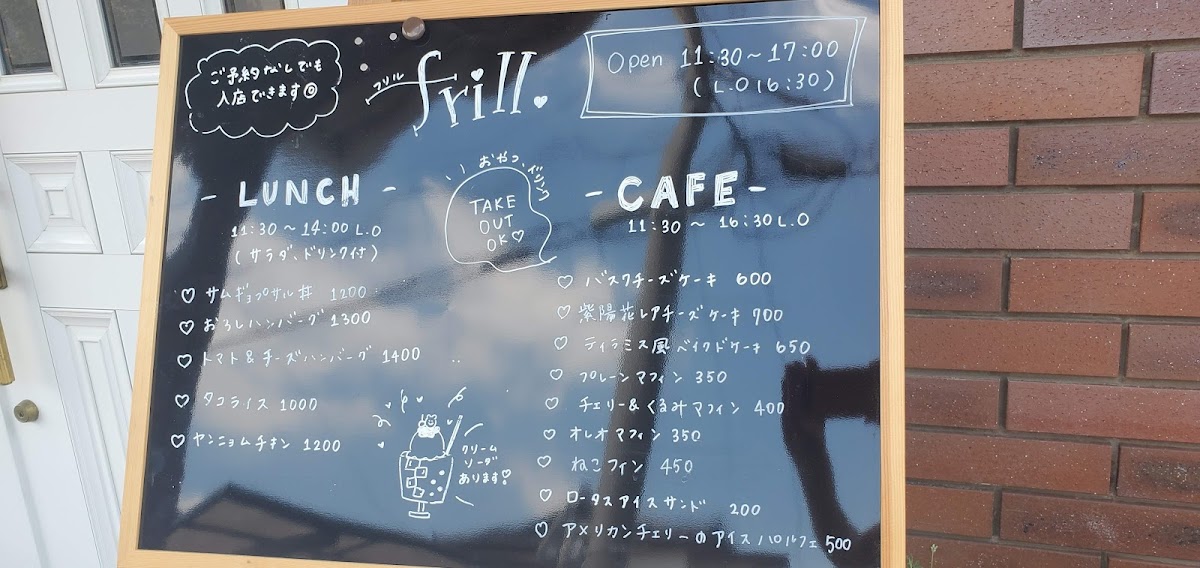 ご予約なしでも
入店できます☺
フリル
frill.
Open 11:30～17:00
(L.O 16:30)
- LUNCH -
11:30 ～ 14:00 L.O
(サラダ、ドリンク付)
♡ サムギョプサル丼 1200
♡ おろしハンバーグ 1300
♡ トマト&チーズハンバーグ 1400
♡ タコライス 1000
♡ ヤンニョムチキン 1200
おやつ、ドリンク
TAKE
OUT
OK♡
クリーム
ソーダ
あります!
- CAFE -
11:30 ～ 16:30 L.O
♡ バスクチーズケーキ 600
♡ 紫陽花レアチーズケーキ 700
♡ ティラミス風ベイクドケーキ 650
♡ プレーンマフィン 350
♡ チェリー&くるみマフィン 400
♡ オレオマフィン 350
♡ ねこフィン 450
♡ ロータスアイスサンド 200
♡ アメリカンチェリーのアイスパルフェ 500